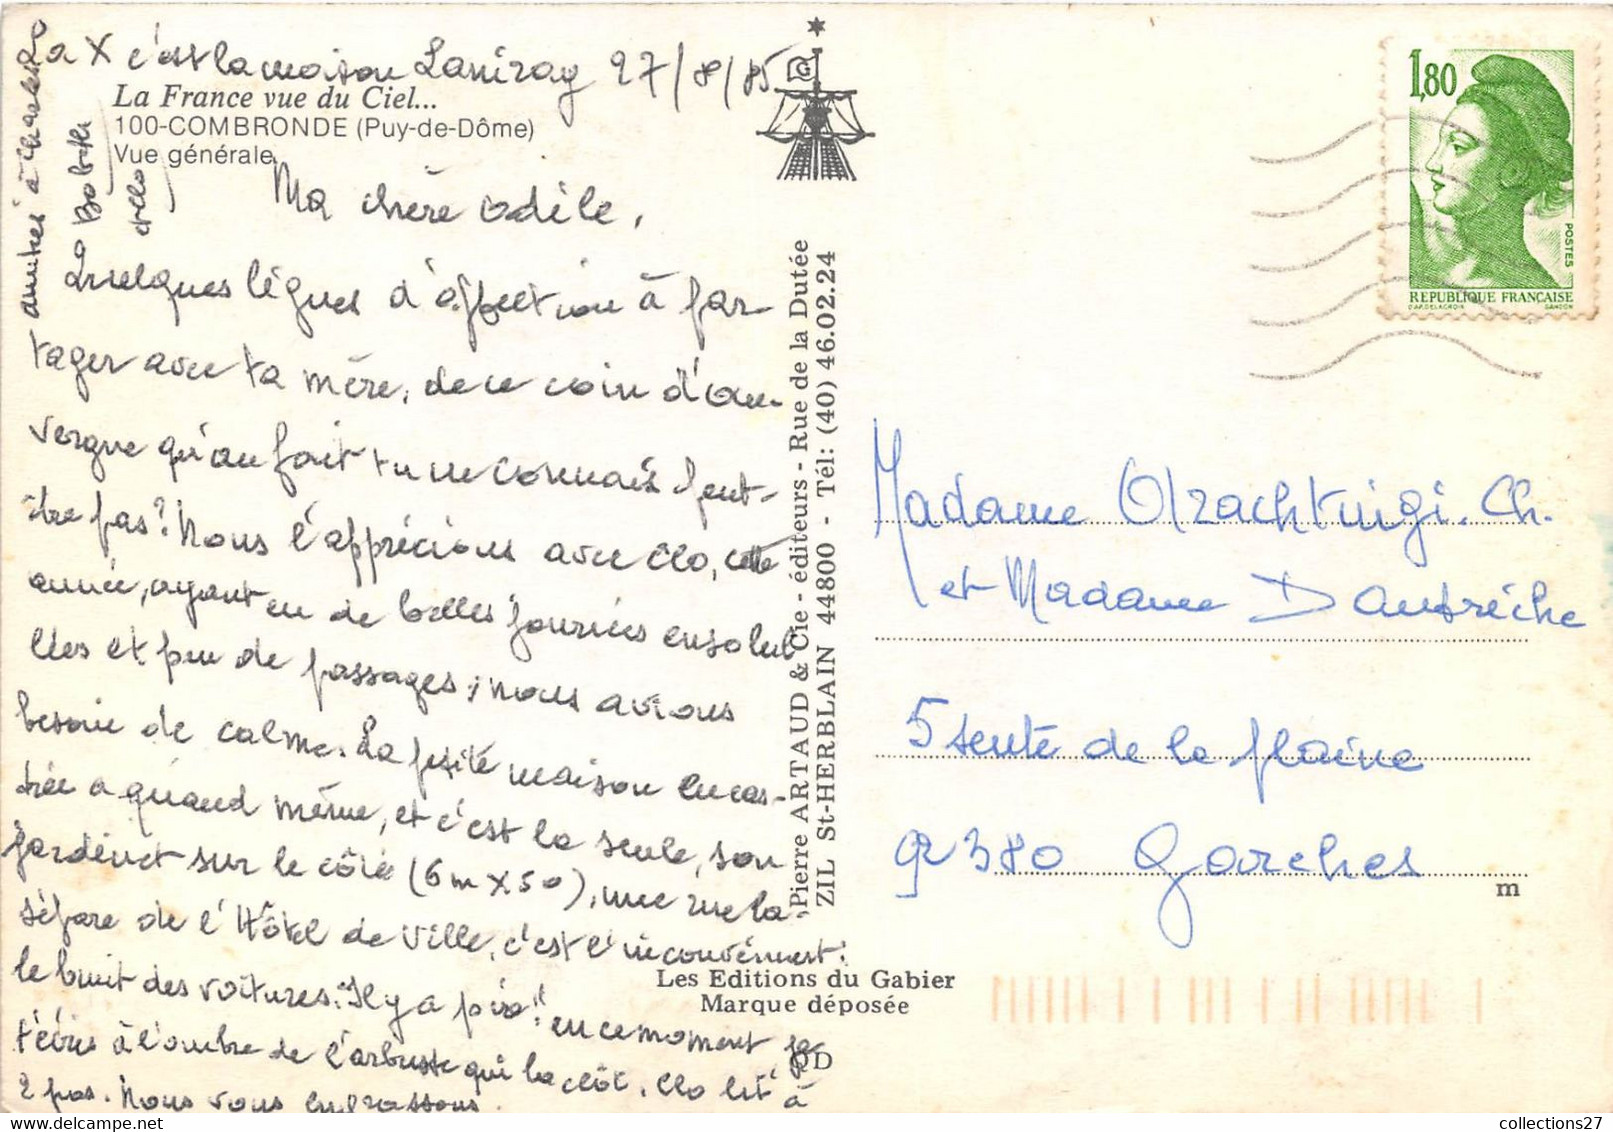 La X c'est la maison 27/8/85
La France vue du Ciel...
100-COMBRONDE (Puy-de-Dôme)
Vue générale
amitiés à Charles
Babeth
Clo
Ma chère Odile,
Quelques lignes d'affection à par-
tager avec ta mère, de ce coin d'Au-
vergne qu'au fait tu ne connais peut-
être pas? Nous l'apprécions avec Clo, cette
année, ayant eu de belles journées ensoleil
lées et peu de passages; nous avions
besoin de calme. La petite maison encas-
trée a quand même, et c'est la seule, son
jardinet sur le côté (6m X 50), une rue la
sépare de l'Hôtel de Ville, c'est l'inconvénient:
le bruit des voitures. "Il y a pire"! en ce moment je
t'écris à l'ombre de l'arbuste qui la clôt. Clo lit à
2 pas. Nous vous embrassons.
Pierre ARTAUD & Cie - éditeurs - Rue de la Dutée
ZIL St-HERBLAIN 44800 - Tél: (40) 46.02.24
Les Editions du Gabier
Marque déposée
D
1,80
POSTES
REPUBLIQUE FRANÇAISE
D'AP. DELACROIX GANDON
Madame
et Madame Dautrèche
5 sente de la plaine
92380 Garches
m
collections27